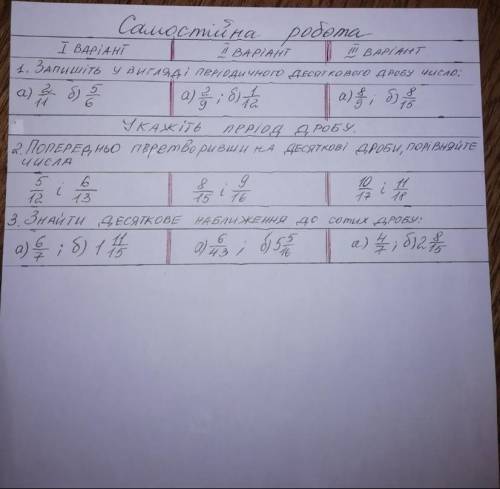 Самостійна робота
І ВАРІАНТ ІІ ВАРІАНТ ІІІ ВАРІАНТ
1. ЗАПИШІТЬ У ВИГЛЯДІ ПЕРІОДИЧНОГО ДЕСЯТКОВОГО ДРОБУ ЧИСЛО:
а) 2/11 б) 5/6 а) 2/9 ; б) 1/12 а) 8/9 ; б) 8/15
УКАЖІТЬ ПЕРІОД ДРОБУ.
2. ПОПЕРЕДНЬО ПЕРЕТВОРИВШИ НА ДЕСЯТКОВІ ДРОБИ, ПОРІВНЯЙТЕ
ЧИСЛА
5/12 і 6/13 8/15 і 9/16 10/17 і 11/18
3. ЗНАЙТИ ДЕСЯТКОВЕ НАБЛИЖЕННЯ ДО СОТИХ ДРОБУ:
а) 6/7 ; б) 1 11/15 а) 6/43 ; б) 5 5/16 а) 4/7 ; б) 2 8/15